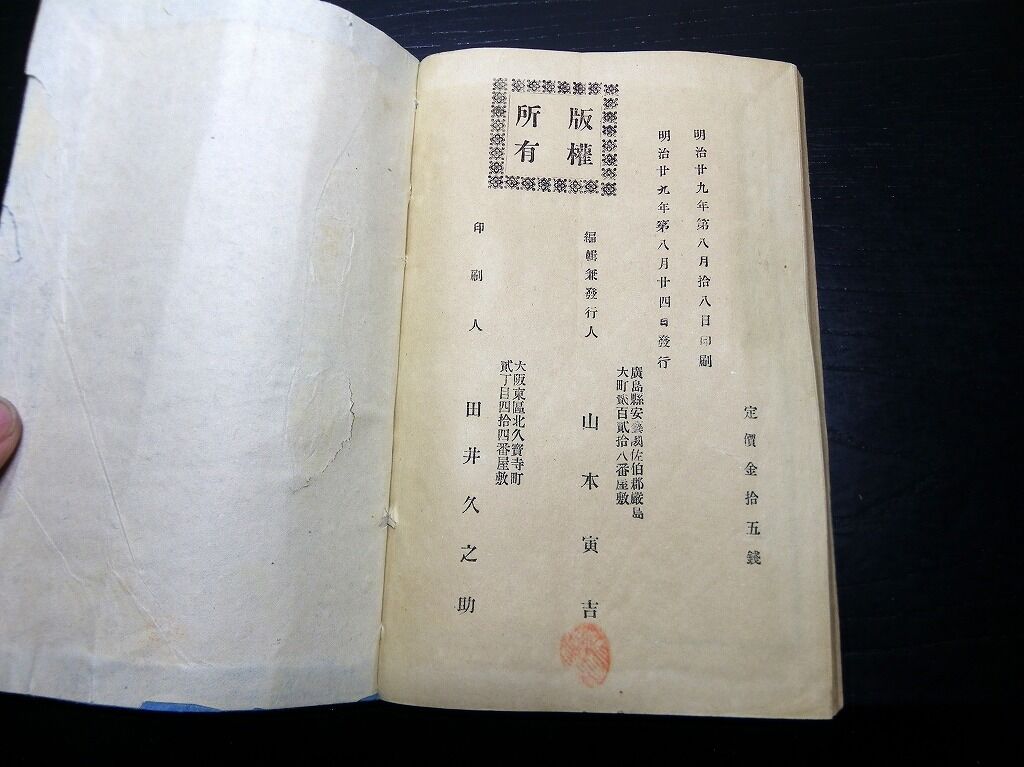 定價金拾五錢
明治廿九年第八月拾八日印刷
明治廿九年第八月廿四日發行
廣島縣安藝國佐伯郡嚴島
大町貳百貳拾八番屋敷
編輯兼發行人
山本寅吉
版權
所有
大阪東區北久寳寺町
貳丁目四拾四番屋敷
印刷人
田井久之助